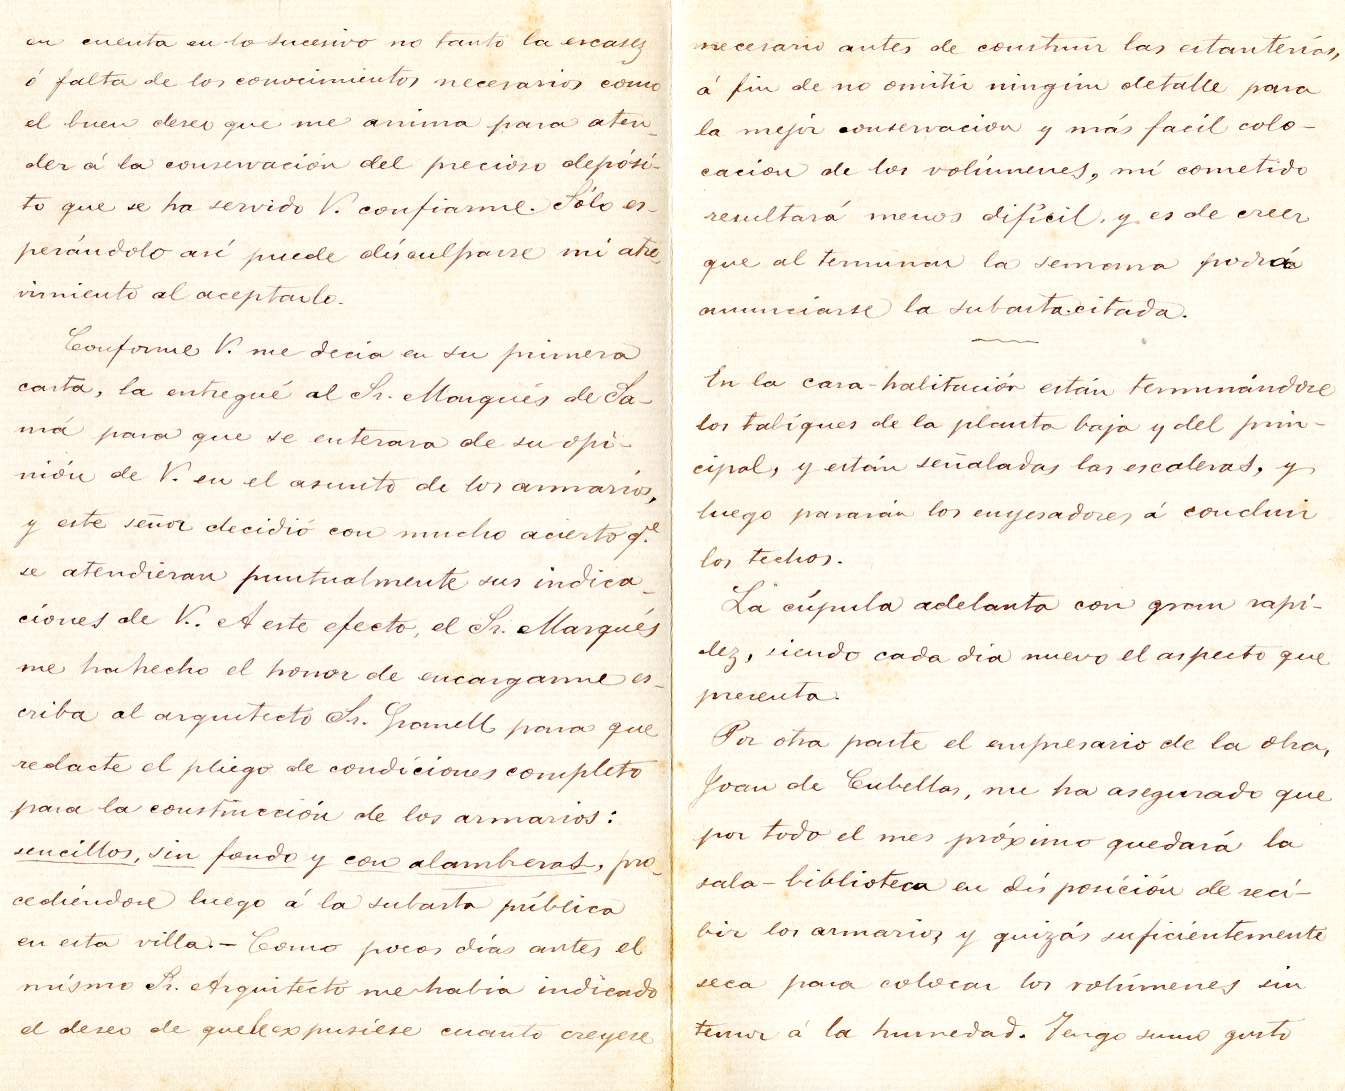 en cuenta en lo sucesivo no tanto la escasez
ó falta de los conocimientos necesarios como
el buen deseo que me anima para aten-
der á la conservación del precioso depósi-
to que se ha servido V. confiarme. Sólo es-
perándolo así puede disculparse mi atre
vimiento al aceptarlo.
Conforme V. me decia en su primera
carta, la entregué al Sr. Marqués de Sa-
má para que se enterara de su opi-
nión de V. en el asunto de los armarios,
y este señor decidió con mucho acierto q.e
se atendieran puntualmente sus indica-
ciones de V.. A este efecto, el Sr. Marqués
me ha hecho el honor de encargarme es-
criba al arquitecto Sr. Granell para que
redacte el pliego de condiciones completo
para la construcción de los armarios:
sencillos, sin fondo y con alambreras, pro-
cediéndose luego á la subasta pública
en esta villa. - Como pocos días antes el
mismo Sr. Arquitecto me habia indicado
el deseo de que le expusiése cuanto creyese
necesario antes de construir las estanterías,
á fin de no omitir ningún detalle para
la mejor conservacion y más facil colo-
cacion de los volúmenes, mi cometido
resultará menos difícil, y es de creer
que al terminar la semana podrá
anunciarse la subasta citada.
En la casa-habitación están terminándose
los tabiques de la planta baja y del prin-
cipal, y están señaladas las escaleras, y
luego pasarán los enyesadores á concluir
los techos.
La cúpula adelanta con gran rapi-
dez, siendo cada dia nuevo el aspecto que
presenta.
Por otra parte el empresario de la obra,
Joan de Cubellas, me ha asegurado que
por todo el mes próximo quedará la
sala-biblioteca en disposición de reci-
bir los armarios y quizás suficientemente
seca para colocar los volúmenes sin
temor á la humedad. Tengo sumo gusto